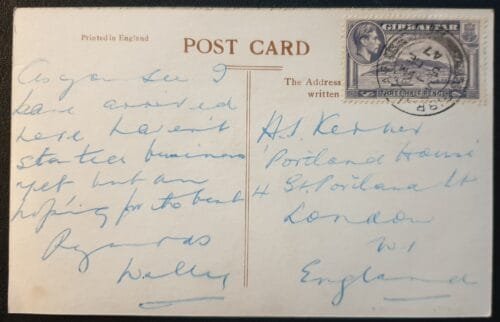 Printed in England
POST CARD
The Address
written
GIBRALTAR
THREE HALFPENCE
47
As you see I
have arrived
here haven't
started business
yet but am
hoping for the best
Regards
H.S.
Portland House
4 Gt. Portland St
London
W1
England